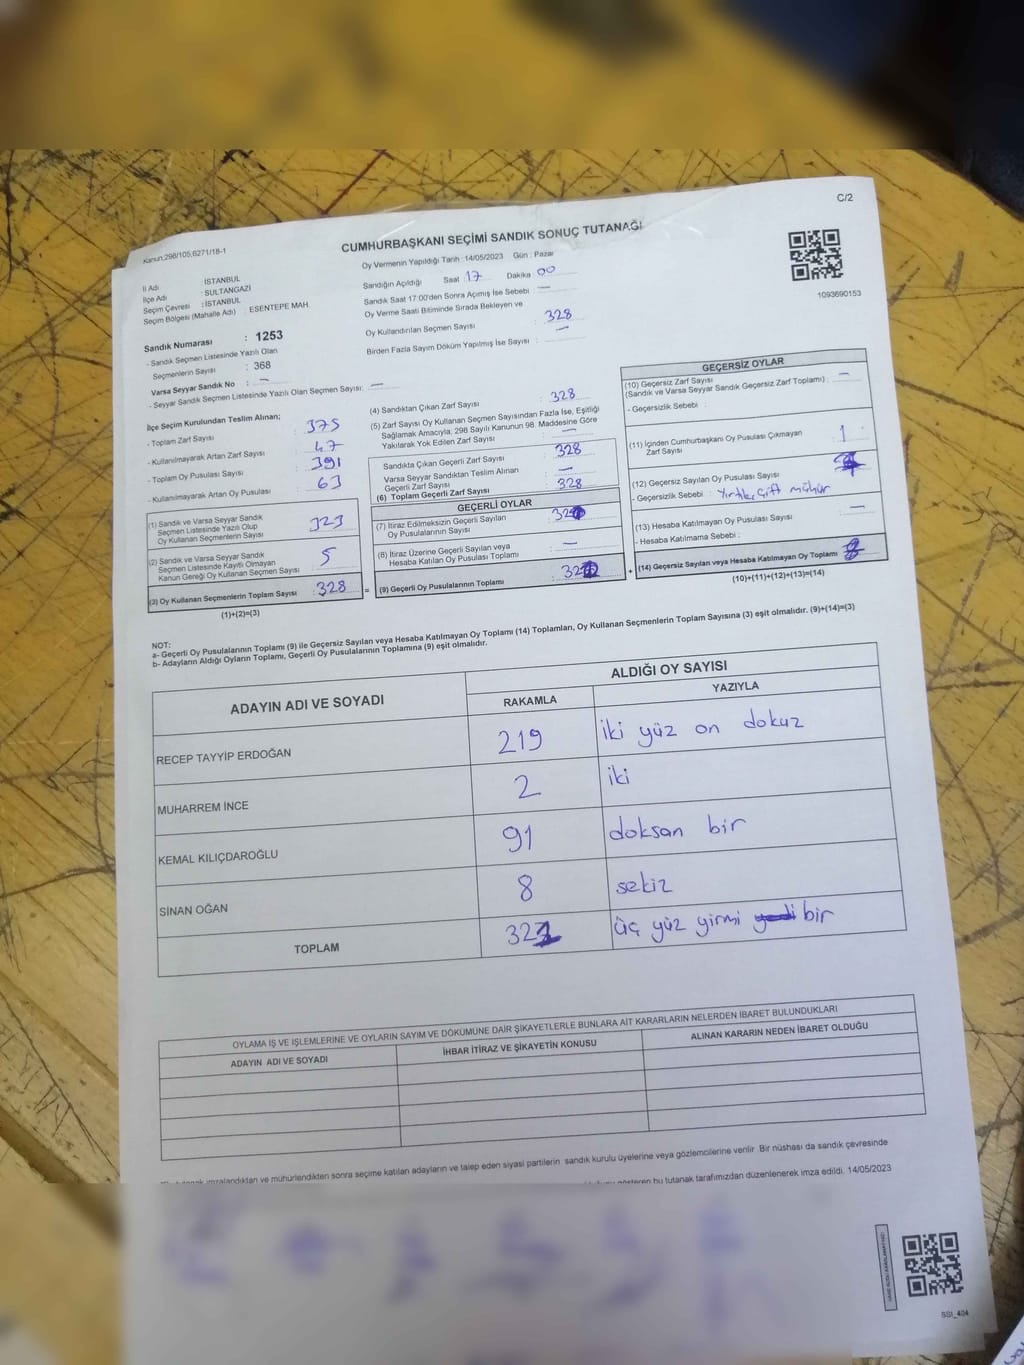 C/2
Kanun;298/105,6271/18-1
CUMHURBAŞKANI SEÇİMİ SANDIK SONUÇ TUTANAĞI
İl Adı : İSTANBUL
İlçe Adı : SULTANGAZİ
Seçim Çevresi : İSTANBUL
Seçim Bölgesi (Mahalle Adı) : ESENTEPE MAH.
Sandık Numarası : 1253
- Sandık Seçmen Listesinde Yazılı Olan
Seçmenlerin Sayısı : 368
Varsa Seyyar Sandık No : —
- Seyyar Sandık Seçmen Listesinde Yazılı Olan Seçmen Sayısı: —
Oy Vermenin Yapıldığı Tarih :14/05/2023 Gün : Pazar
Sandığın Açıldığı Saat 17 Dakika 00
Sandık Saat 17:00'den Sonra Açımış İse Sebebi : —
Oy Verme Saati Bitiminde Sırada Bekleyen ve
Oy Kullandırılan Seçmen Sayısı : 328
Birden Fazla Sayım Döküm Yapılmış İse Sayısı : —
1093690153
İlçe Seçim Kurulundan Teslim Alınan;
- Toplam Zarf Sayısı : 375
- Kullanılmayarak Artan Zarf Sayısı : 47
- Toplam Oy Pusulası Sayısı : 391
- Kullanılmayarak Artan Oy Pusulası : 63
(1) Sandık ve Varsa Seyyar Sandık
Seçmen Listesinde Yazılı Olup
Oy Kullanan Seçmenlerin Sayısı : 323
(2) Sandık ve Varsa Seyyar Sandık
Seçmen Listesinde Kayıtlı Olmayan
Kanun Gereği Oy Kullanan Seçmen Sayısı : 5
(3) Oy Kullanan Seçmenlerin Toplam Sayısı : 328
(1)+(2)=(3)
(4) Sandıktan Çıkan Zarf Sayısı : 328
(5) Zarf Sayısı Oy Kullanan Seçmen Sayısından Fazla İse, Eşitliği
Sağlamak Amacıyla; 298 Sayılı Kanunun 98. Maddesine Göre
Yakılarak Yok Edilen Zarf Sayısı : —
Sandıkta Çıkan Geçerli Zarf Sayısı : 328
Varsa Seyyar Sandıktan Teslim Alınan
Geçerli Zarf Sayısı : —
(6) Toplam Geçerli Zarf Sayısı : 328
GEÇERLİ OYLAR
(7) İtiraz Edilmeksizin Geçerli Sayılan
Oy Pusulalarının Sayısı :
(8) İtiraz Üzerine Geçerli Sayılan veya
Hesaba Katılan Oy Pusulası Toplamı : —
(9) Geçerli Oy Pusulalarının Toplamı :
GEÇERSİZ OYLAR
(10) Geçersiz Zarf Sayısı
(Sandık ve Varsa Seyyar Sandık Geçersiz Zarf Toplamı) : —
- Geçersizlik Sebebi :
(11) İçinden Cumhurbaşkanı Oy Pusulası Çıkmayan
Zarf Sayısı : 1
(12) Geçersiz Sayılan Oy Pusulası Sayısı :
- Geçersizlik Sebebi : Yırtık, çift mühür
(13) Hesaba Katılmayan Oy Pusulası Sayısı : —
- Hesaba Katılmama Sebebi :
(14) Geçersiz Sayılan veya Hesaba Katılmayan Oy Toplamı :
(10)+(11)+(12)+(13)=(14)
NOT:
a- Geçerli Oy Pusulalarının Toplamı (9) ile Geçersiz Sayılan veya Hesaba Katılmayan Oy Toplamı (14) Toplamları, Oy Kullanan Seçmenlerin Toplam Sayısına (3) eşit olmalıdır. (9)+(14)=(3)
b- Adayların Aldığı Oyların Toplamı, Geçerli Oy Pusulalarının Toplamına (9) eşit olmalıdır.
ADAYIN ADI VE SOYADI ALDIĞI OY SAYISI
RAKAMLA YAZIYLA
RECEP TAYYİP ERDOĞAN 219 iki yüz on dokuz
MUHARREM İNCE 2 iki
KEMAL KILIÇDAROĞLU 91 doksan bir
SİNAN OĞAN 8 sekiz
TOPLAM üç yüz yirmi yedi bir
OYLAMA İŞ VE İŞLEMLERİNE VE OYLARIN SAYIM VE DÖKÜMÜNE DAİR ŞİKAYETLERLE BUNLARA AİT KARARLARIN NELERDEN İBARET BULUNDUKLARI
ADAYIN ADI VE SOYADI İHBAR İTİRAZ VE ŞİKAYETİN KONUSU ALINAN KARARIN NEDEN İBARET OLDUĞU
imzalandıktan ve mühürlendikten sonra seçime katılan adayların ve talep eden siyasi partilerin sandık kurulu üyelerine veya gözlemcilerine verilir. Bir nüshası da sandık çevresinde
gösteren bu tutanak tarafımızdan düzenlenerek imza edildi. 14/05/2023
SSI_404